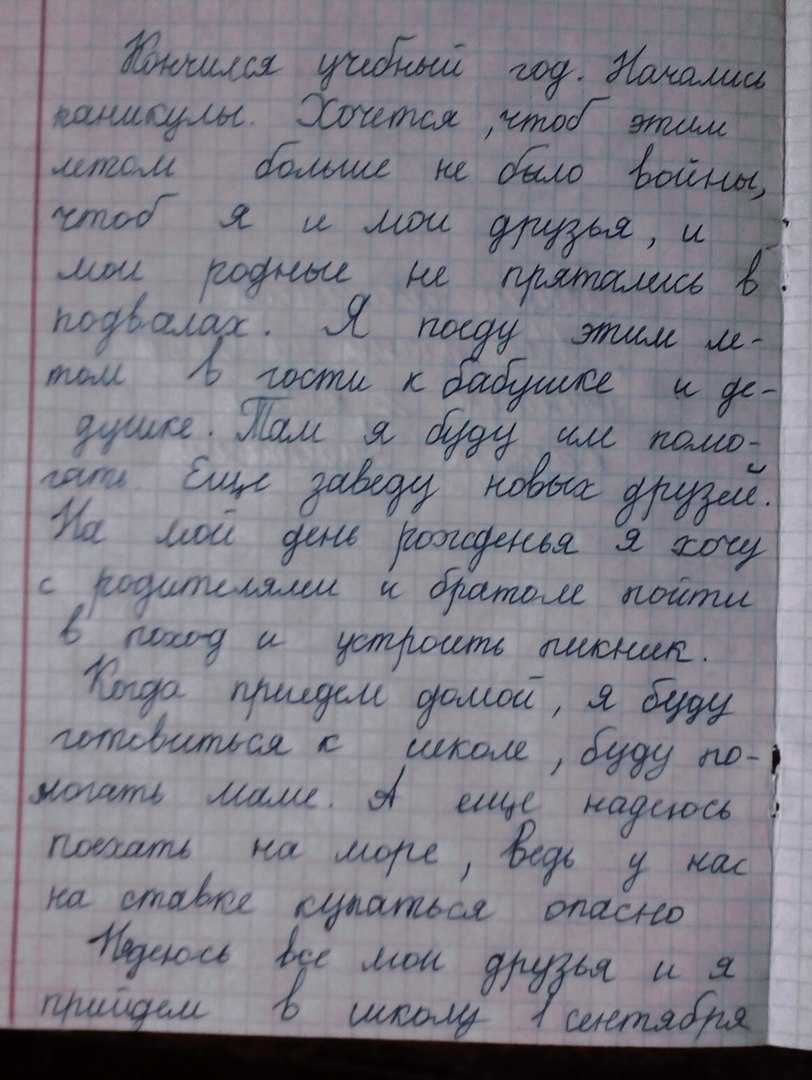 Кончился учебный год. Начались
каникулы. Хочется, чтоб этим
летом больше не было войны,
чтоб я и мои друзья, и
мои родные не прятались в
подвалах. Я поеду этим ле-
том в гости к бабушке и де-
душке. Там я буду им помо-
гать. Еще заведу новых друзей.
На мой день рожденья я хочу
с родителями и братом пойти
в поход и устроить пикник.
Когда приедем домой, я буду
готовиться к школе, буду по-
могать маме. А еще надеюсь
поехать на море, ведь у нас
на ставке купаться опасно
Надеюсь все мои друзья и я
прийдем в школу 1 сентября